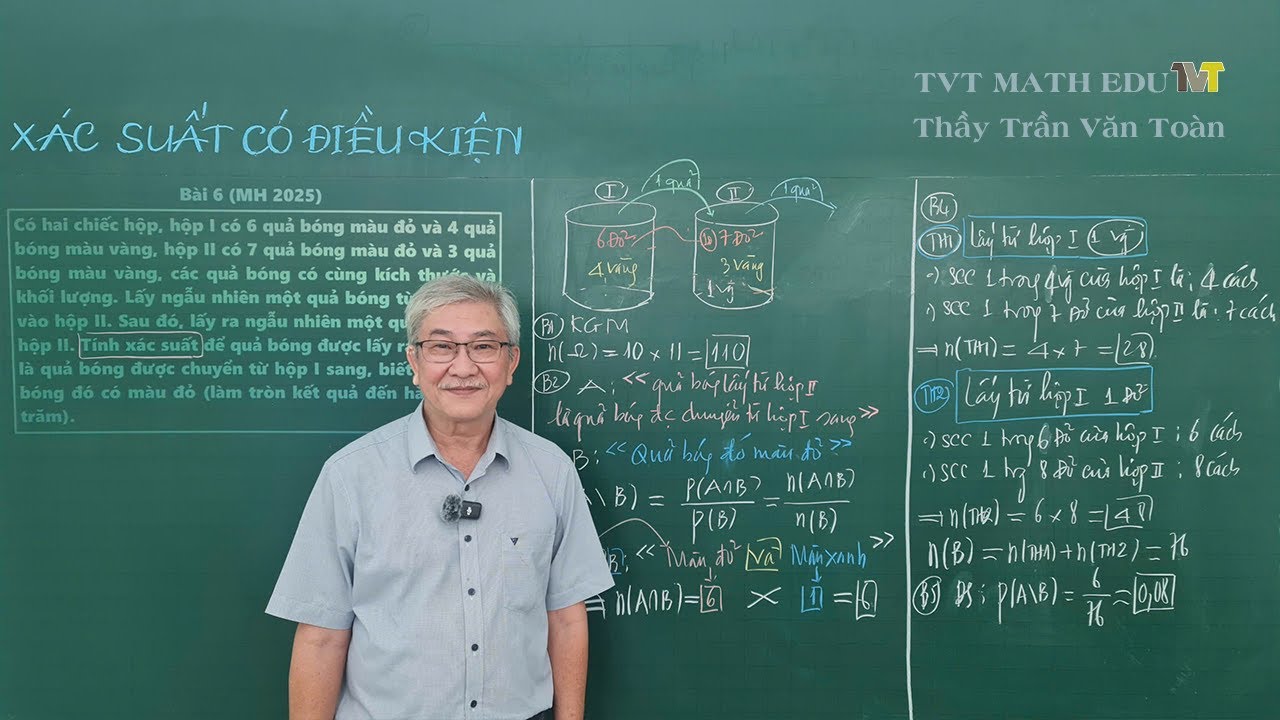 TVT MATH EDU TVT
Thầy Trần Văn Toàn
XÁC SUẤT CÓ ĐIỀU KIỆN
Bài 6 (MH 2025)
Có hai chiếc hộp, hộp I có 6 quả bóng màu đỏ và 4 quả
bóng màu vàng, hộp II có 7 quả bóng màu đỏ và 3 quả
bóng màu vàng, các quả bóng có cùng kích thước và
khối lượng. Lấy ngẫu nhiên một quả bóng
vào hộp II. Sau đó, lấy ra ngẫu nhiên một
hộp II. Tính xác suất để quả bóng được lấy
là quả bóng được chuyển từ hộp I sang, biết
bóng đó có màu đỏ (làm tròn kết quả đến
trăm).
I 1 quả II 1 quả
6 Đỏ 7 Đỏ
4 Vàng 3 Vàng
1 Vg
B1 KGM
n(Ω) = 10 x 11 = 110
B2 A: << quả bóng lấy từ hộp II
là quả bóng đc chuyển từ hộp I sang >>
B: << Quả bóng đó màu đỏ >>
\ B) = P(A∩B)/P(B) = n(A∩B)/n(B)
B: << Màu đỏ Và Màu xanh >>
⇒ n(A∩B) = 6 × 1 = 6
B4
TH1 Lấy từ hộp I 1 Vg
+) SCC 1 trong 4 Vg của hộp I là: 4 cách
+) SCC 1 trong 7 Đỏ của hộp II là: 7 cách
⇒ n(TH1) = 4 x 7 = 28
TH2 Lấy từ hộp I 1 Đỏ
+) SCC 1 trong 6 Đỏ của hộp I: 6 cách
+) SCC 1 trg 8 Đỏ của hộp II: 8 cách
⇒ n(TH2) = 6 x 8 = 48
n(B) = n(TH1) + n(TH2) = 76
B5 ĐS: P(A\B) = 6/76 ≈ 0,08